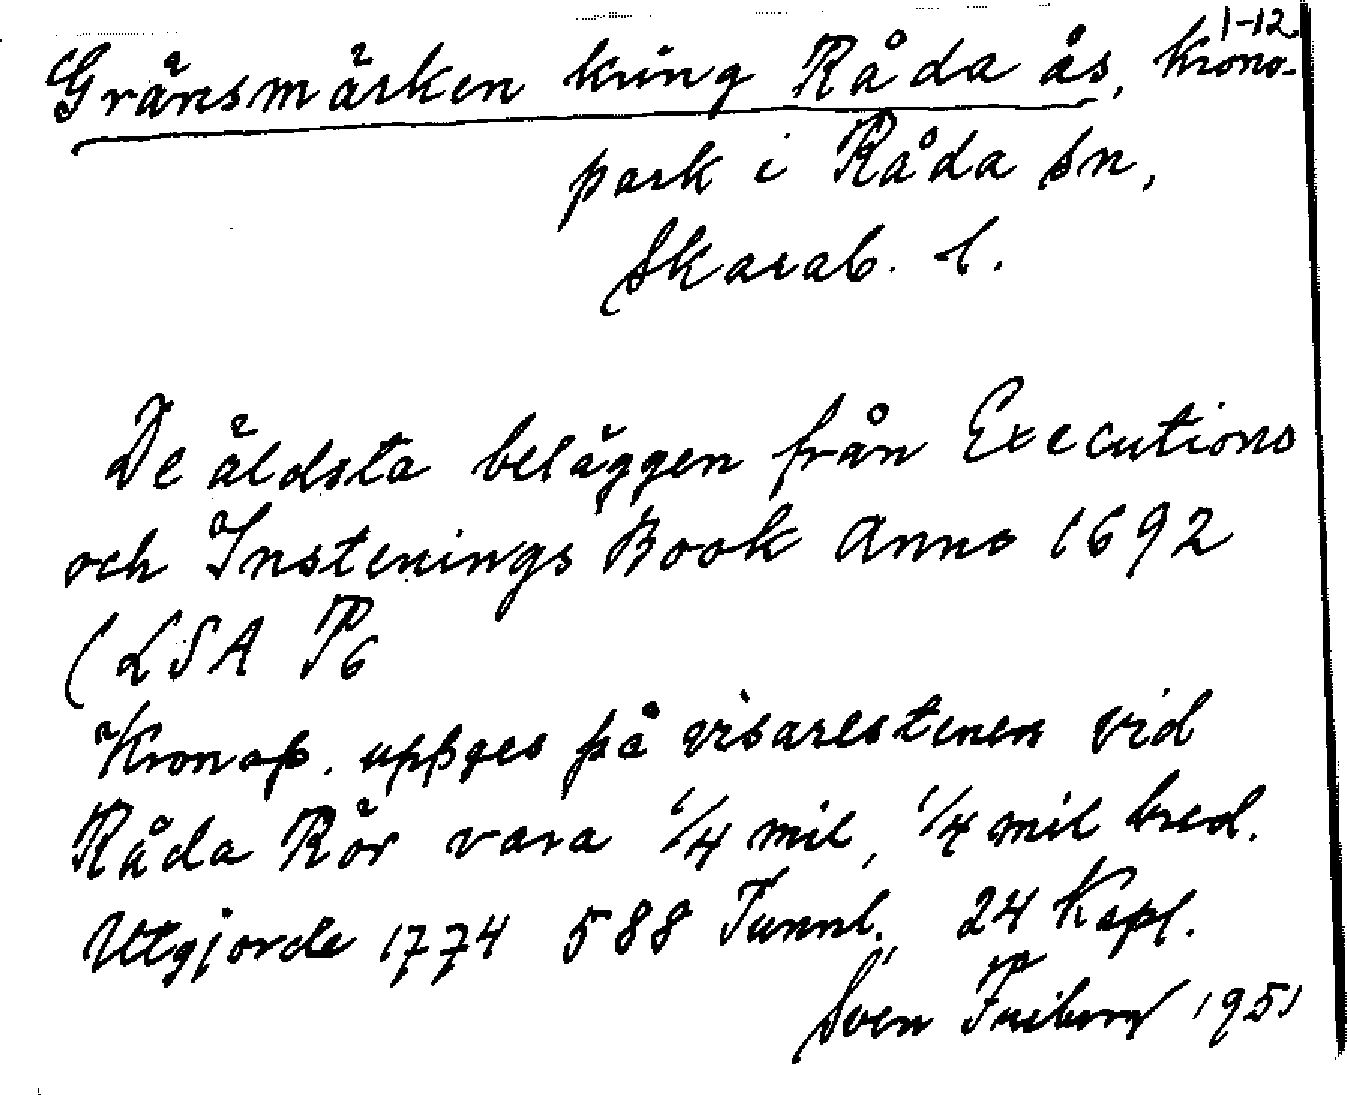 1-12.
Gränsmärken kring Råda ås, Krono-
park i Råda sn,
Skarab. l.
De äldsta beläggen från Executions
och Instenings Book Anno 1692
(LSA P6
Kronop. uppges på visarestenen vid
Råda Rör vara 1/4 mil, 1/4 mil bred.
Utgjorde 1774 588 Tunnl., 24 Kapl.
Sven Friberg 1951